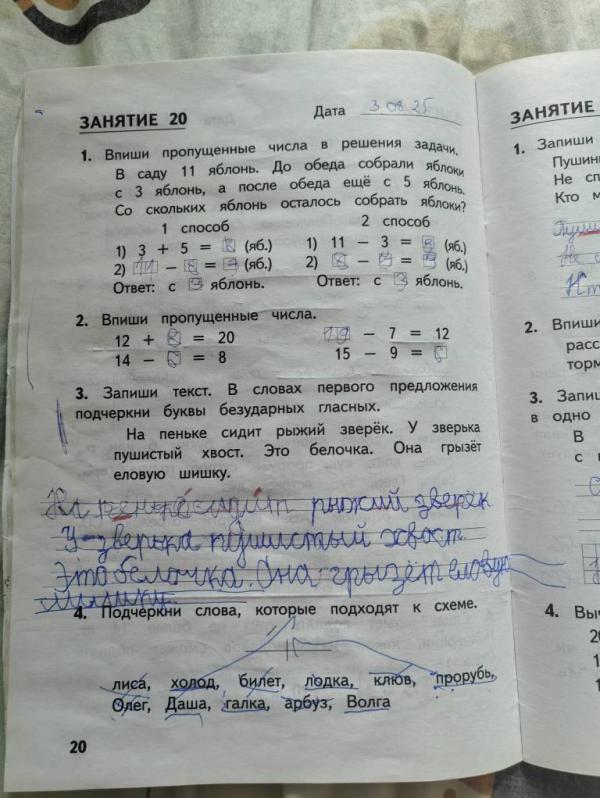 ЗАНЯТИЕ 20
Дата 3 08 25
1. Впиши пропущенные числа в решения задачи.
В саду 11 яблонь. До обеда собрали яблоки
с 3 яблонь, а после обеда ещё с 5 яблонь.
Со скольких яблонь осталось собрать яблоки?
1 способ 2 способ
1) 3 + 5 = 8 (яб.) 1) 11 - 3 = 8 (яб.)
2) 11 - 8 = 3 (яб.) 2) 8 - (яб.)
Ответ: с 3 яблонь. Ответ: с 3 яблонь.
2. Впиши пропущенные числа.
12 + 8 = 20 19 - 7 = 12
14 - 6 = 8 15 - 9 = 6
3. Запиши текст. В словах первого предложения
подчеркни буквы безударных гласных.
На пеньке сидит рыжий зверёк. У зверька
пушистый хвост. Это белочка. Она грызёт
еловую шишку.
На пеньке сидит рыжий зверёк
У зверька пушистый хвост.
Это белочка. Она грызёт еловую
шишку
4. Подчеркни слова, которые подходят к схеме.
лиса, холод, билет, лодка, клюв, прорубь,
Олег, Даша, галка, арбуз, Волга
20
ЗАНЯТИЕ
1. Запиши
Пушин
Не сп
Кто м
2. Впиши
расс
торм
3. Запи
в одно
В
с
4. Вы